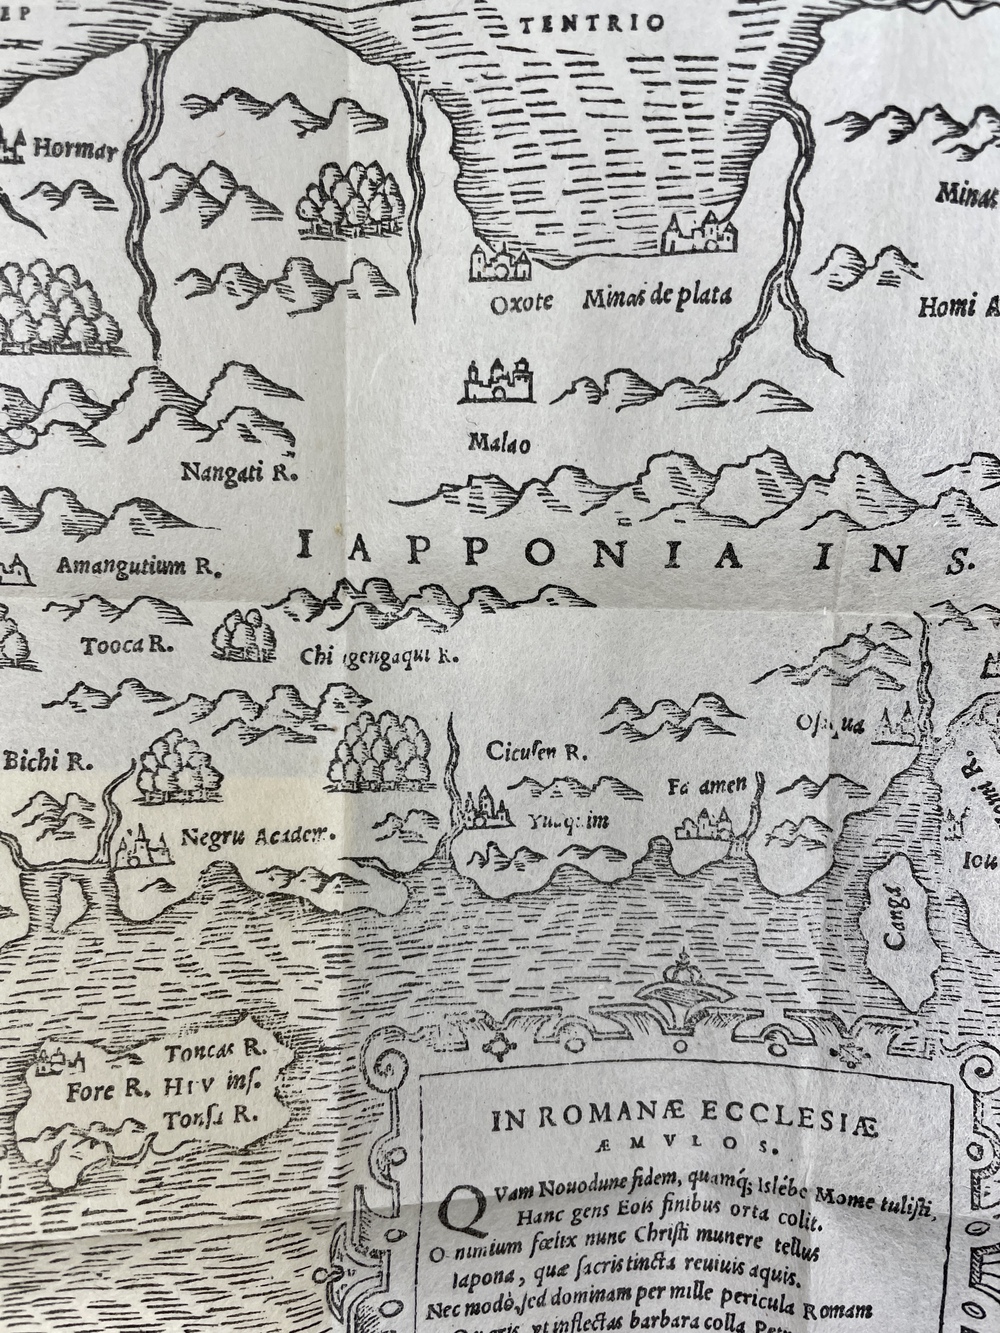 EP
TENTRIO
Hormar
Minas
Oxote
Minas de plata
Homi A
Malao
Nangati R.
IAPPONIA INS.
Amangutium R.
Tooca R.
Chi gengaqui R.
Bichi R.
Cicuſen R.
Fa amen
Negru Academ.
Canga
Iou
Toncas R.
Fore R. HIV inſ.
Tonſa R.
IN ROMANÆ ECCLESIÆ
ÆMVLOS.
QVam Nouodune fidem, quamq́; Islébe Mome tuliſti,
Hanc gens Eois finibus orta colit.
O nimium fœlix nunc Chriſti munere tellus
Iapona, quæ ſacris tincta reuiuis aquis.
Nec modò, ſed dominam per mille pericula Romam
vt inflectas barbara colla